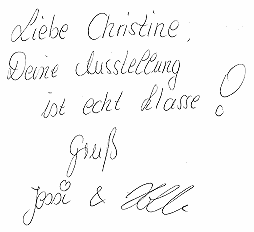 Liebe Christine,
Deine Ausstellung
ist echt klasse!
Gruß
Jossi &